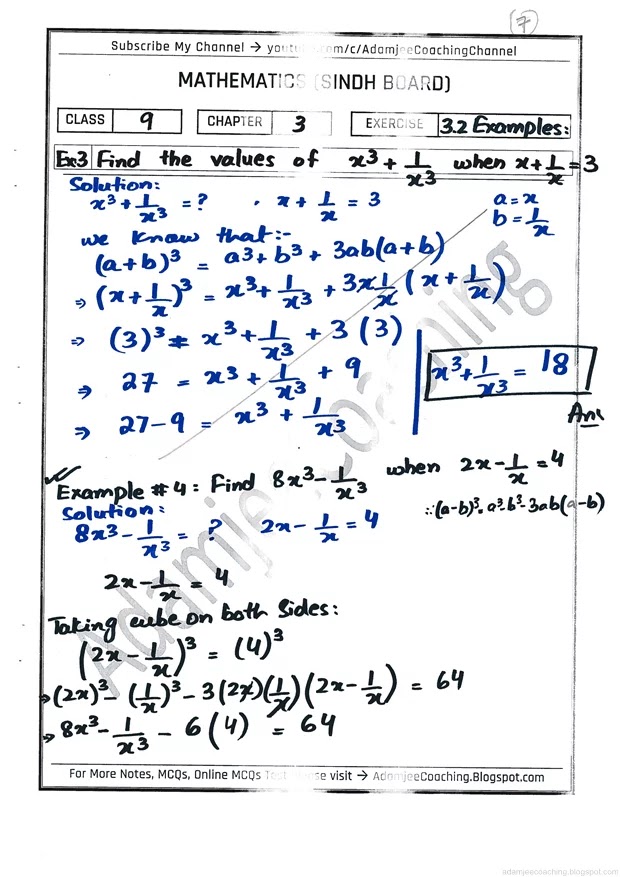 7
Subscribe My Channel → youtube.com/c/AdamjeeCoachingChannel
MATHEMATICS (SINDH BOARD)
CLASS 9 CHAPTER 3 EXERCISE 3.2 Examples:
Ex3 Find the values of x³ + 1/x³ when x + 1/x = 3
Solution:
x³ + 1/x³ = ? , x + 1/x = 3
a = x
b = 1/x
we know that:-
(a+b)³ = a³ + b³ + 3ab(a+b)
⇒ (x + 1/x)³ = x³ + 1/x³ + 3x 1/x (x + 1/x)
⇒ (3)³ = x³ + 1/x³ + 3 (3)
⇒ 27 = x³ + 1/x³ + 9
⇒ 27 - 9 = x³ + 1/x³
x³ + 1/x³ = 18
Ans
Example #4: Find 8x³ - 1/x³ when 2x - 1/x = 4
Solution:
8x³ - 1/x³ = ? 2x - 1/x = 4
∵ (a-b)³ = a³-b³-3ab(a-b)
2x - 1/x = 4
Taking cube on both sides:
(2x - 1/x)³ = (4)³
⇒ (2x)³ - (1/x)³ - 3(2x)(1/x)(2x - 1/x) = 64
⇒ 8x³ - 1/x³ - 6(4) = 64
Adamjee Coaching
For More Notes, MCQs, Online MCQs Test Please visit → AdamjeeCoaching.Blogspot.com
adamjeecoaching.blogspot.com